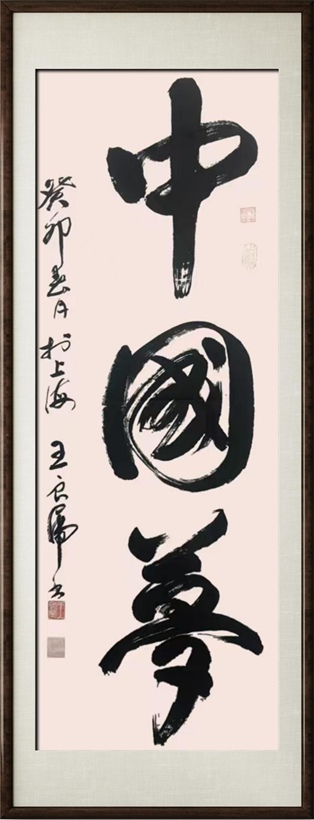 中國夢
癸卯春月於上海 王良虎書